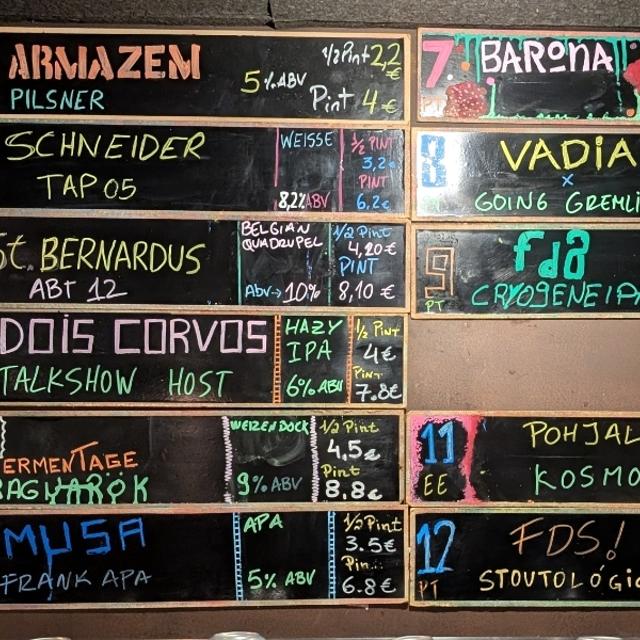 ARMAZEM
PILSNER
5% ABV
1/2 Pint 2,2 €
Pint 4 €
SCHNEIDER
TAP 05
WEISSE
8,2% ABV
1/2 PINT
3,2€
PINT
6,2€
St. BERNARDUS
ABT 12
BELGIAN
QUADRUPEL
ABV→ 10%
1/2 PINT
4,20€
PINT
8,10€
DOIS CORVOS
TALKSHOW HOST
HAZY
IPA
6% ABV
1/2 Pint
4€
Pint
7.8€
ERMENTAGE
RAGNAROK
WEIZENDOCK
9% ABV
1/2 Pint
4,5€
Pint
8,8€
MUSA
FRANK APA
APA
5% ABV
1/2 Pint
3.5€
Pin..
6.8€
7
PT
BARONA
8
VADIA
x
GOING GREMLI
9
PT
fd8
CRYOGENEIA
11
EE
POHJAL
KOSMO
12
PT
FDS!
STOUTOLÓGIC